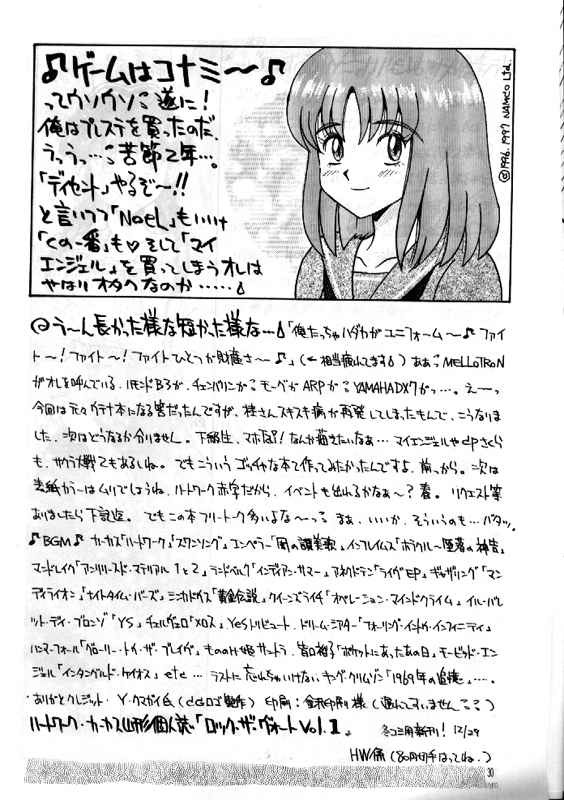 ♪ゲームはコナミ〜♪
ってウソウソ 遂に!
俺はプレステを買ったのだ.
うっうっ…苦節2年….
「ディセント」やるぞ〜!!
と言いつつ「NOëL」もいいけ
「くの一番」も♡そして「マイ
エンジェル」を買ってしまうオレは
やはりオタクなのか……
©1996, 1997 NAMCO Ltd.
う〜ん長かった様な短かった様な…「俺たっちゃハダカがユニフォーム〜♪ファイ
ト〜!ファイト〜!ファイトひとつが財産さ〜♪」(←相当疲れてます)ああ MELLOTRON
がオレを呼んでいる. ハモンドB3が. チェンバリンが モーグが ARPが YAMAHA DX7がっ…. えーっ
今回は元々グテナ本になる筈だったんですが、桂さんスキスキ病が再発してしまったもんで、こうなりま
した. 次はどうなるか分りません。下級生、マホ なんか描きたいなぁ…マイエンジェルや さくら
も、サクラ大戦てもあるしね。でもこういうゴッチャな本て作ってみたかったんですよ、前っから。次は
表紙カラーはムリでしょうね. ハートワーク赤字だから. イベントも出れるかなぁ〜?春。リクエスト等
ありましたら下記迄。でもこの本フリートーク多いよな〜っ まぁ、いいか、そういうのも…バタッ.
♪BGM♪カーカス「ハートワーク」「スワンソング」エンペラー「闇の讃美歌」インフレイムス「ホラクル
マンドレイク「アンリリースド・マテリアル1と2」ランドベルク「インディアン・サマー」アネクドテン「ライヴEP」ギャザリング「マン
ディライオン」ナイトタイム・バーズ」ミンカドガス「黄金伝説」クイーンズライチ「オペレーション・マインドクライム」イル・バレ
ット・ディ・ブロンゾ「YS」チェルヴェロ「メロス」YESトリビュート. ドリーム・シアター「フォーリング・イントゥ・インフィニティ」
ハンマーフォール「グローリー・トゥ・ザ・ブレイヴ」もののけ姫サントラ. 谷口裕子「ポケットにあったあの日」モービッド・エン
ジェル「インタングルド・ケイオス」etc… ラストに忘れちゃいけないキング・クリムゾン「1969年の追憶」….
ありがとクレジット・Y・クマガイ氏(ロゴ製作)印刷:金沢印刷様(遅れてすいません)
ハートワーク・カーカス山形個人誌「ロック・ザ・ヴォートVol.1」冬コミ用新刊! 12/29
HW係(80円切手はってね.)
30